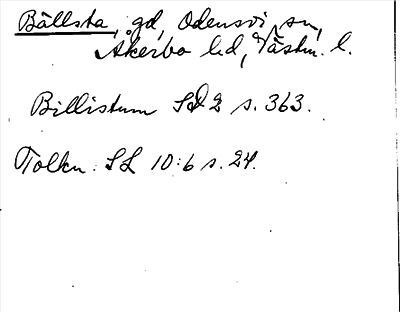 Bällsta, gd, Odensvi sn,
Åkerbo hd, Västm. l.
Billistum SD 2 s. 363.
Tolkn. SL 10:6 s. 24.